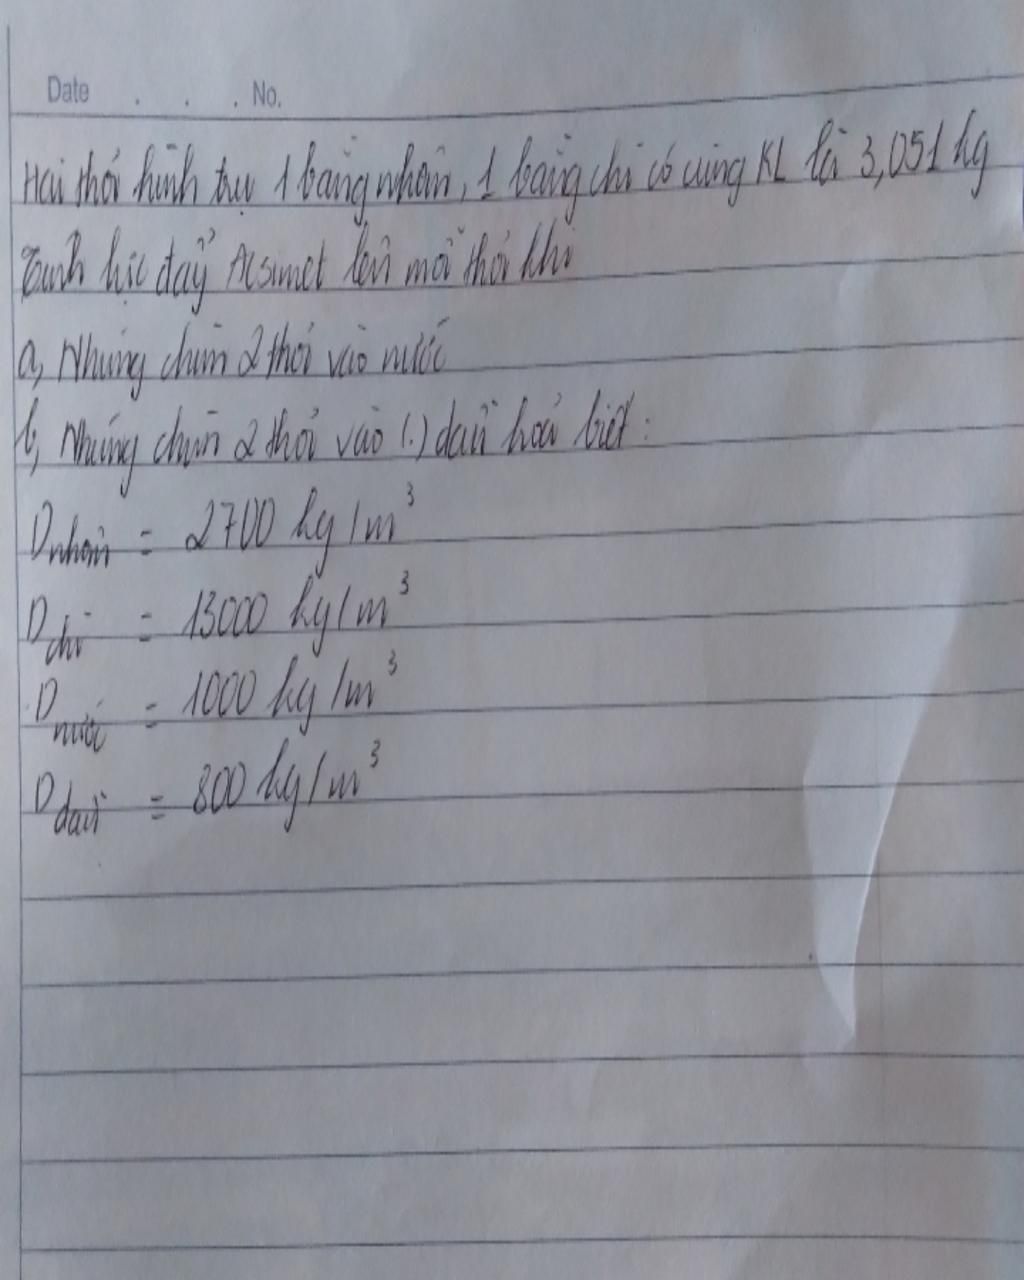 Date . . . No.
Hai thỏi hình trụ 1 bằng nhôm, 1 bằng chì có cùng KL là 3,051 kg
Tính lực đẩy Acsimet lên mỗi thỏi khi
a, Nhúng chìm 2 thỏi vào nước
b, Nhúng chìm 2 thỏi vào (.) dầu hoả biết :
D nhôm = 2700 kg/m³
D chì = 13000 kg/m³
D nước = 1000 kg/m³
D dầu = 800 kg/m³